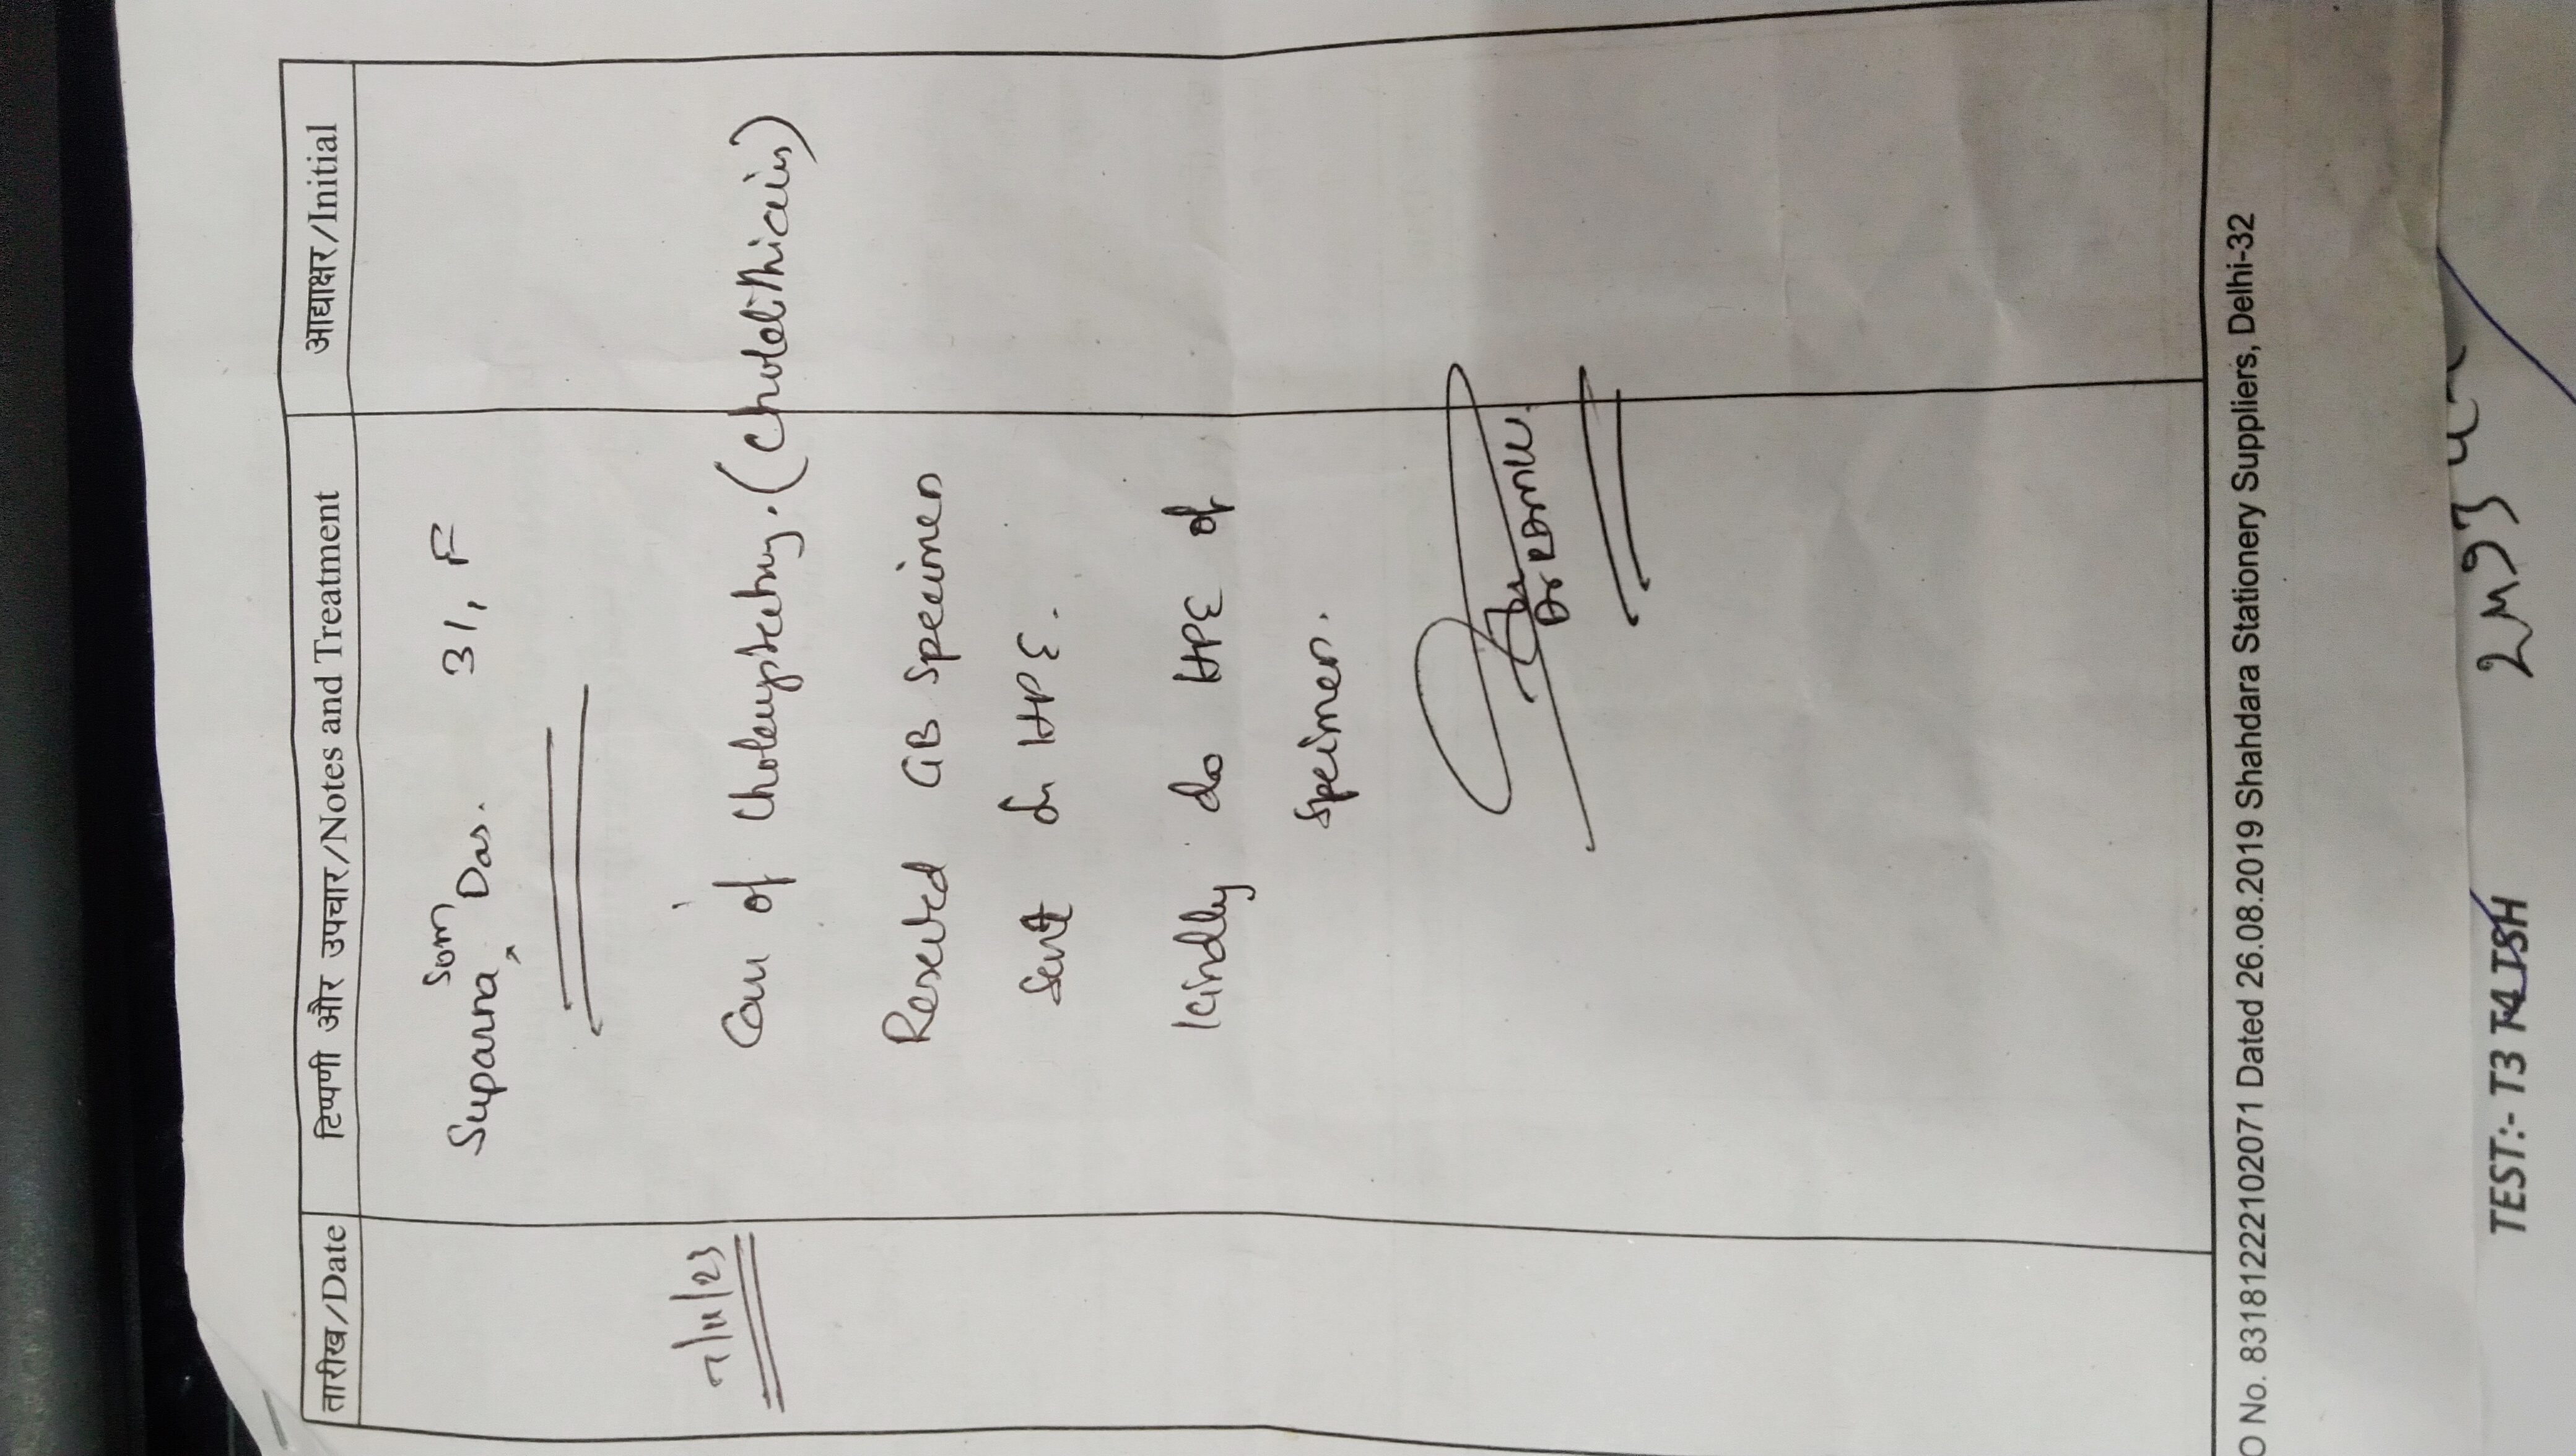 तारीख/Date टिप्पणी और उपचार/Notes and Treatment आद्याक्षर/Initial
Suparna Som Das. 31, F
7/11/23
Case of Cholecystectomy. (Cholelithiasis)
Resected GB Specimen
Sent for HPE.
Kindly do HPE of
Specimen.
O No. 831812222102071 Dated 26.08.2019 Shahdara Stationery Suppliers, Delhi-32
TEST:- T3 T4 TSH